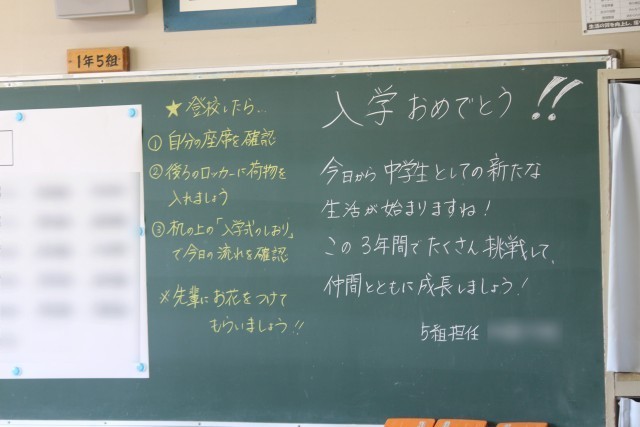 1年5組
★登校したら…
① 自分の座席を確認
② 後ろのロッカーに荷物を
入れましょう
③ 机の上の「入学式のしおり」
で今日の流れを確認
※先輩にお花をつけて
もらいましょう!!
入学おめでとう!!
今日から中学生としての新たな
生活が始まりますね!
この3年間でたくさん挑戦して、
仲間とともに成長しましょう!
5組担任